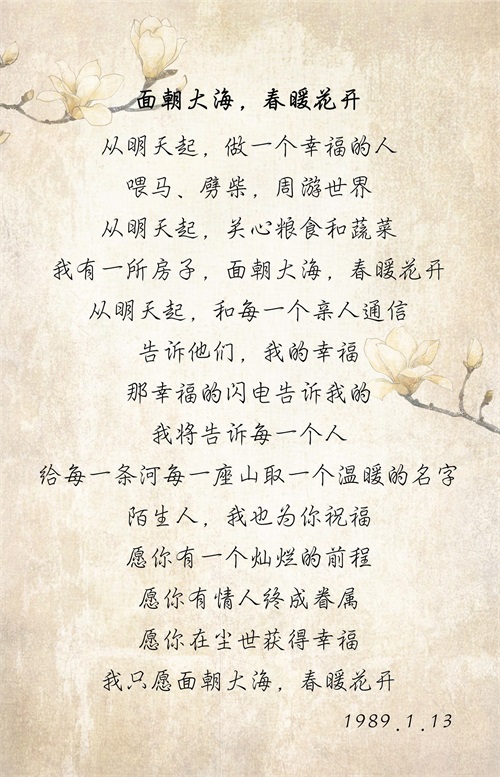 面朝大海，春暖花开
从明天起，做一个幸福的人
喂马、劈柴，周游世界
从明天起，关心粮食和蔬菜
我有一所房子，面朝大海，春暖花开
从明天起，和每一个亲人通信
告诉他们，我的幸福
那幸福的闪电告诉我的
我将告诉每一个人
给每一条河每一座山取一个温暖的名字
陌生人，我也为你祝福
愿你有一个灿烂的前程
愿你有情人终成眷属
愿你在尘世获得幸福
我只愿面朝大海，春暖花开
1989.1.13